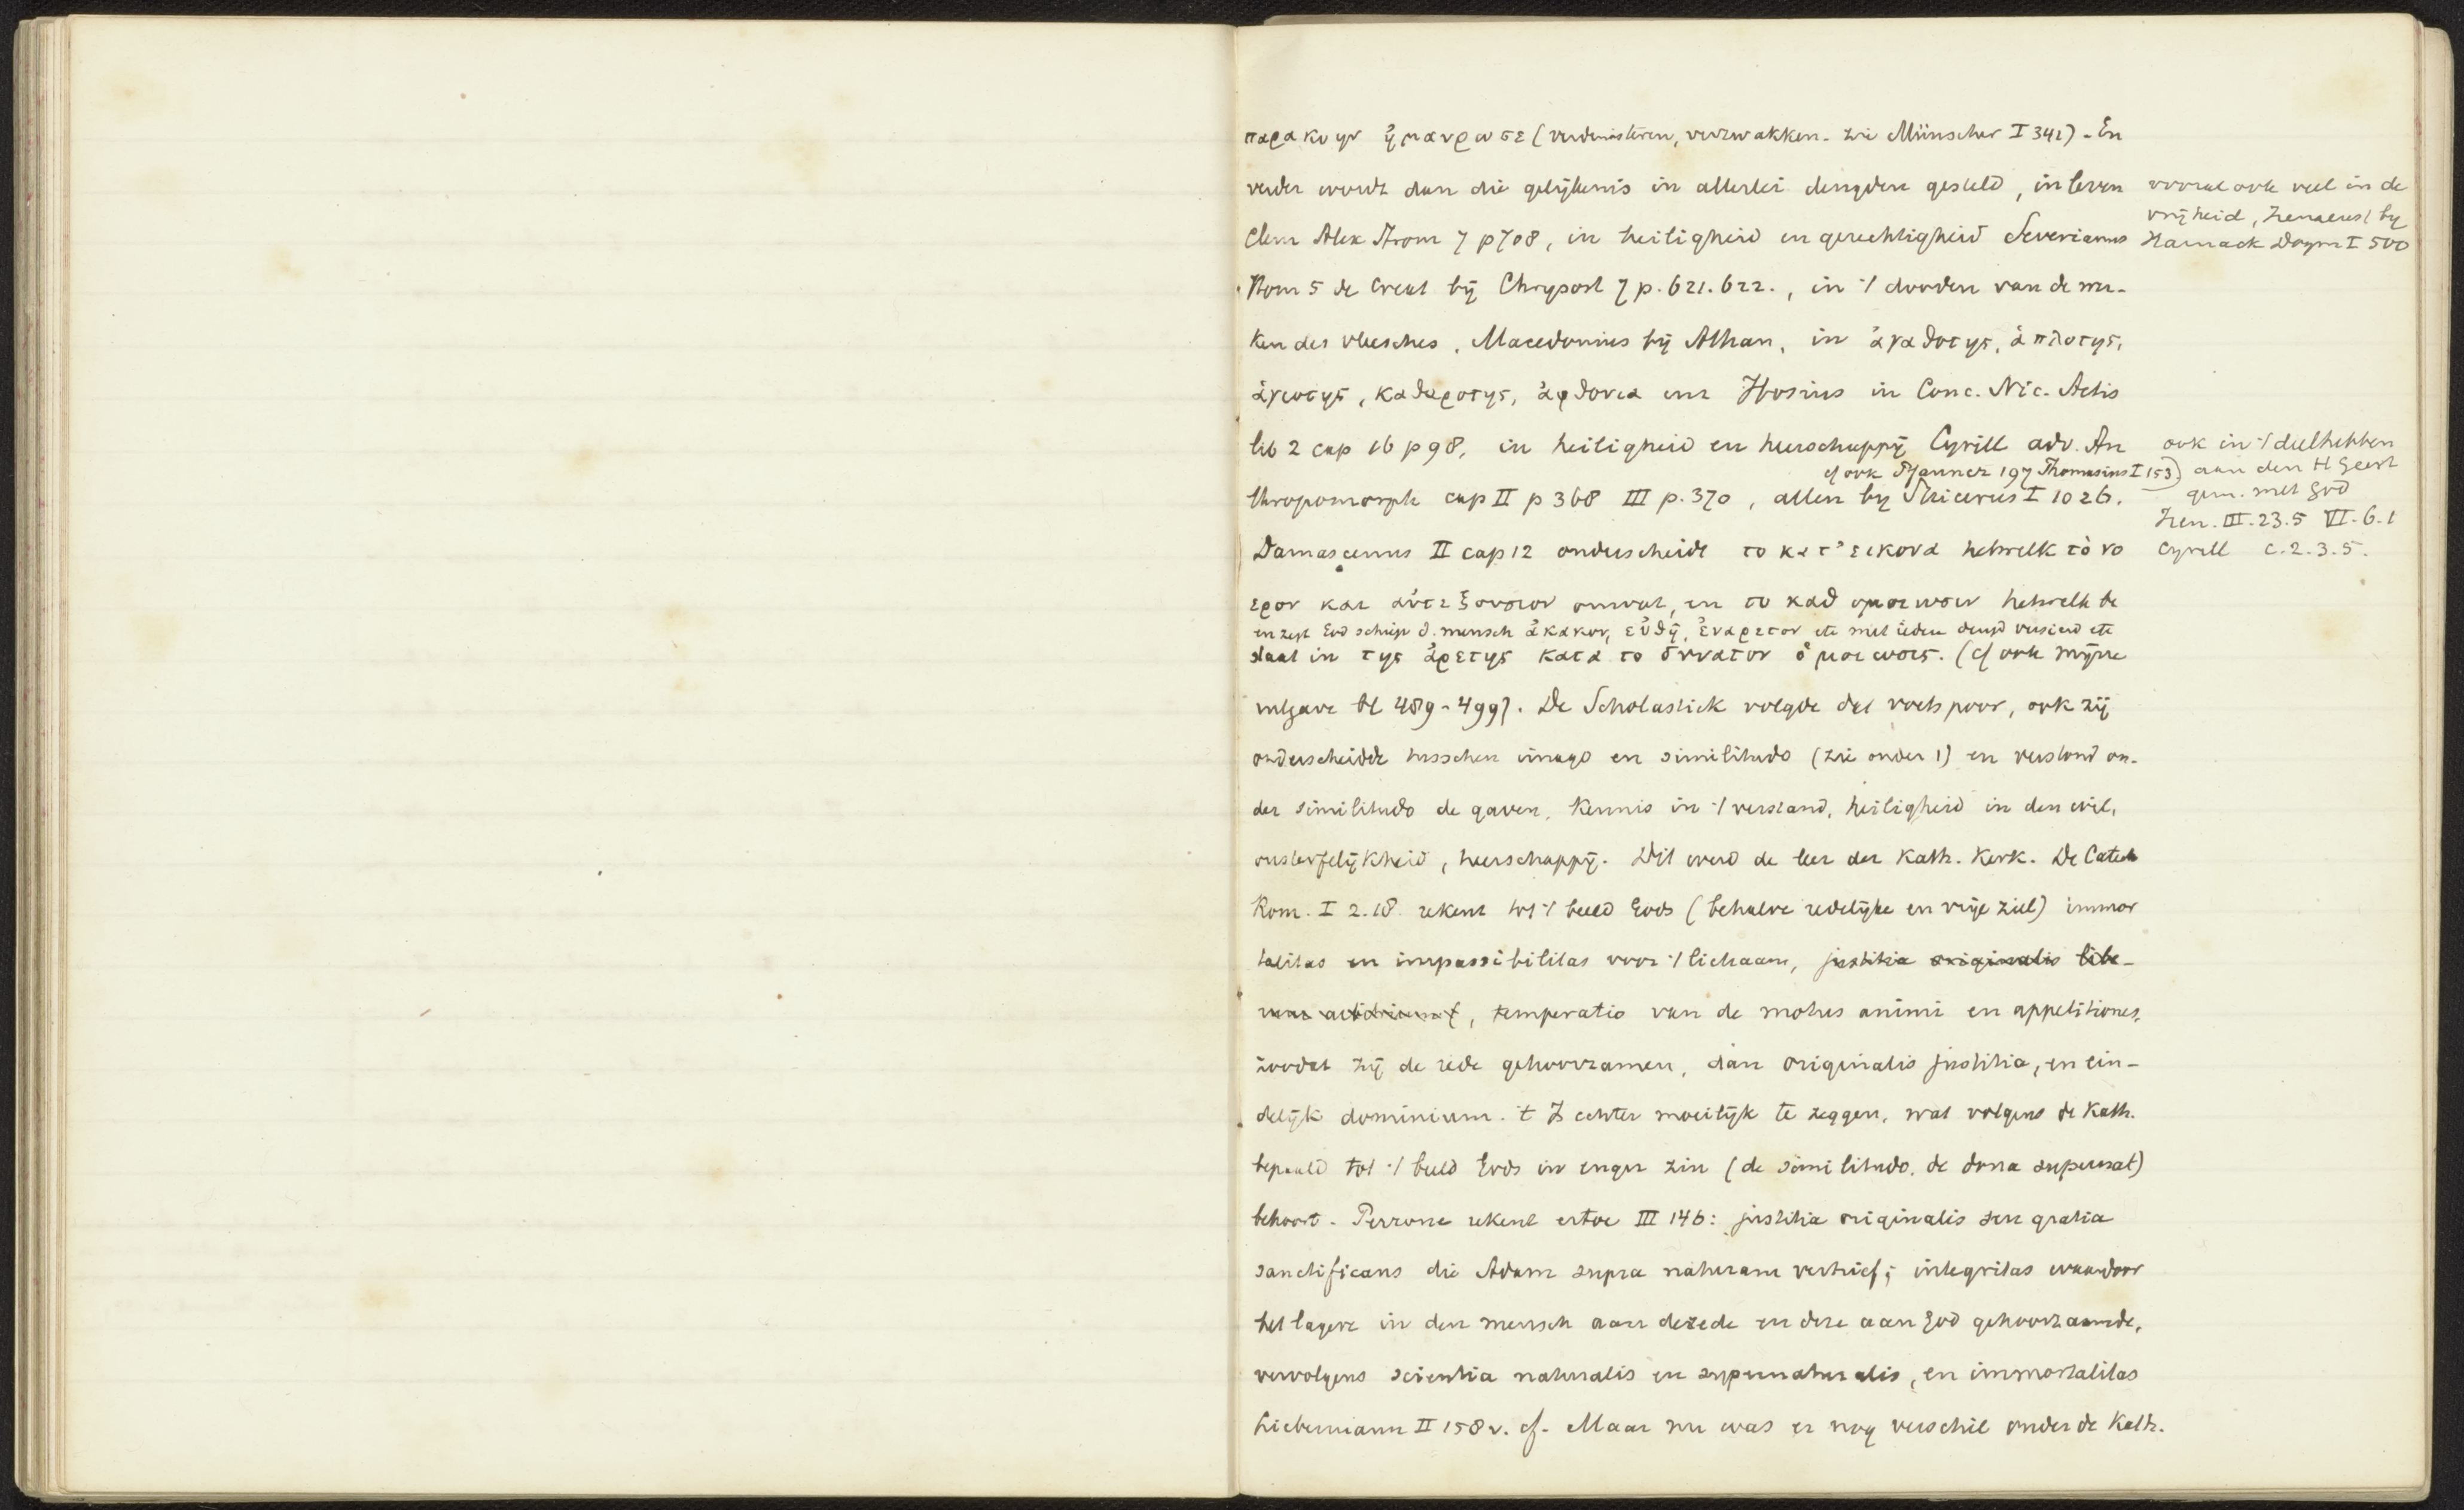 παρακοην ἠμαυρωσε (verduisteren, verzwakken. zie Münscher I 342) - En
verder wordt dan die gelijkenis in allerlei deugden gesteld, in leven
vooral ook veel in de
vrijheid, Irenaeus by
Harnack Dogm I 500
Clem Alex Strom 7 p 708, in heiligheid en gerechtigheid Severianus
Hom 5 de Creat bij Chrysost 7 p. 621. 622., in 't dooden van de wer-
ken des vleesches, Macedonius bij Athan, in ἀγαθοτης, ἁπλοτης,
ἁγιοτης, καθαροτης, ἀφθονια enz Hosius in Conc. Nic. Actis
lib 2 cap 16 p 98, in heiligheid en heerschappij Cyrill adv. An
ook in 't deelhebben
aan den H Geest
gem. met God
Iren. III. 23. 5 VI. 6. 1
Cyrill c. 2. 3. 5.
cf ook Pfanner 197 Thomasius I 153)
thropomorph cap II p 368 III p. 370, allen by Suicerus I 1026.
Damascenus II cap 12 onderscheidt το κατ' εικονα hetwelk τὸ νο
ερον και αὐτεξουσιον omvat, en το καθ ομοιωσιν hetwelk be
en zegt God schiep d. mensch ἀκακον, εὐθη, ἐναρετον etc met iedere deugd versierd etc
staat in της ἀρετης κατα το δυνατον ὁμοιωσις. (cf ook mijne
uitgave bl 489-499). De Scholastiek volgde dat voetspoor, ook zij
onderscheidde tusschen imago en similitudo (zie onder 1) en verstond on-
der similitudo de gaven, kennis in 't verstand, heiligheid in den wil,
onsterfelijkheid, heerschappij. Dit werd de leer der Kath. Kerk. De Catech
Rom. I 2. 18. rekent tot 't beeld Gods (behalve redelijke en vrije ziel) immor
talitas en impassibilitas voor 't lichaam, justitia originalis libe-
rum arbitrium, temperatio van de motus animi en appetitiones,
zoodat zij de rede gehoorzamen, dan originalis justitia, en ein-
delijk dominium. 't Is echter moeilijk te zeggen, wat volgens de Kath.
bepaald tot 't beeld Gods in enger zin (de similitudo, de dona supernat)
behoort. Perrone rekent ertoe III 146: justitia originalis seu gratia
sanctificans die Adam supra naturam verhief; integritas waardoor
het lagere in den mensch aan de rede en deze aan God gehoorzaamde,
vervolgens scientia naturalis en supernaturalis, en immortalitas
Liebermann II 158 v. cf. Maar nu was er nog verschil onder de Kath.